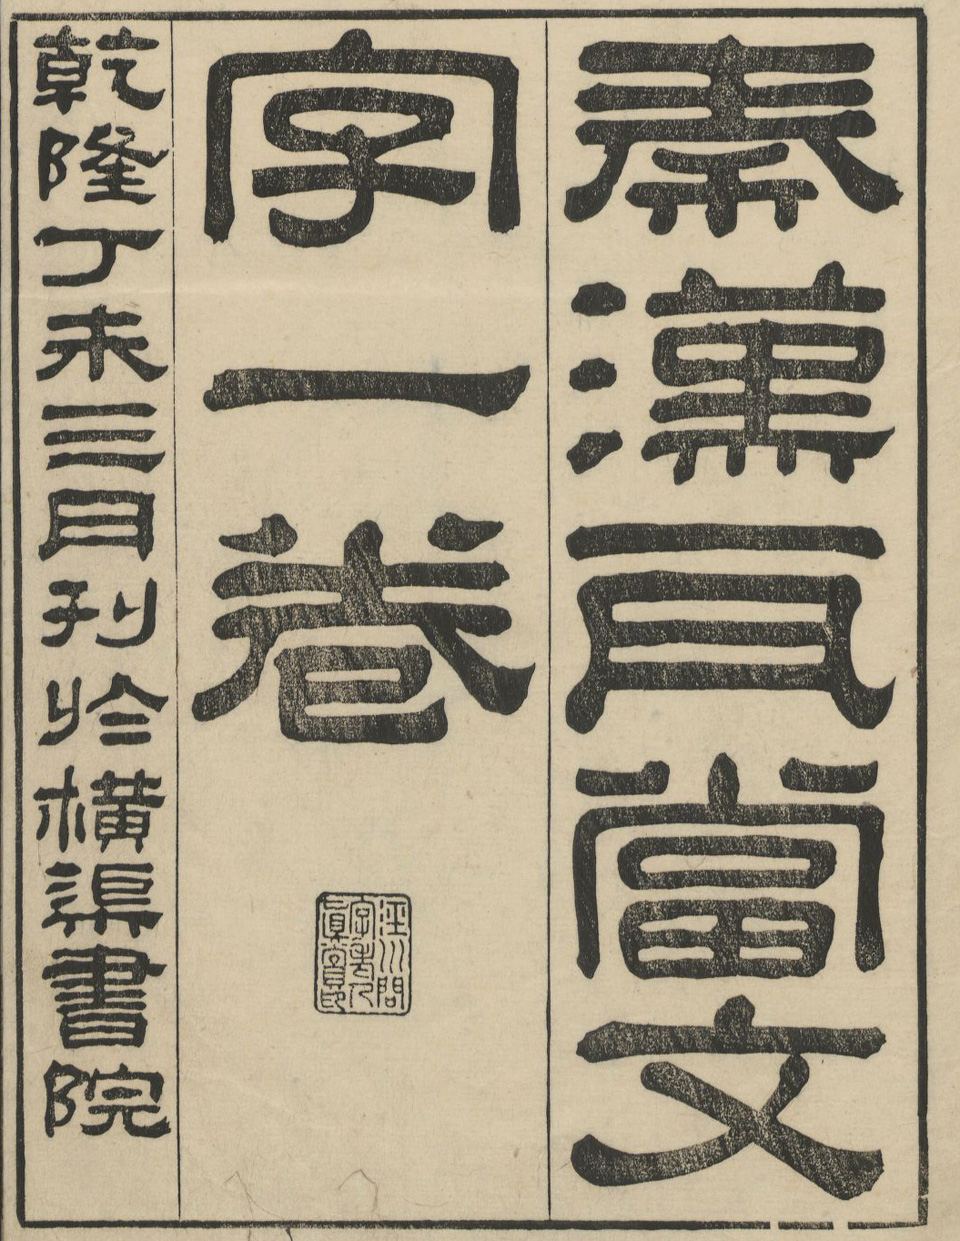 秦漢瓦當文
字一卷
乾隆丁未三月刊於橫渠書院